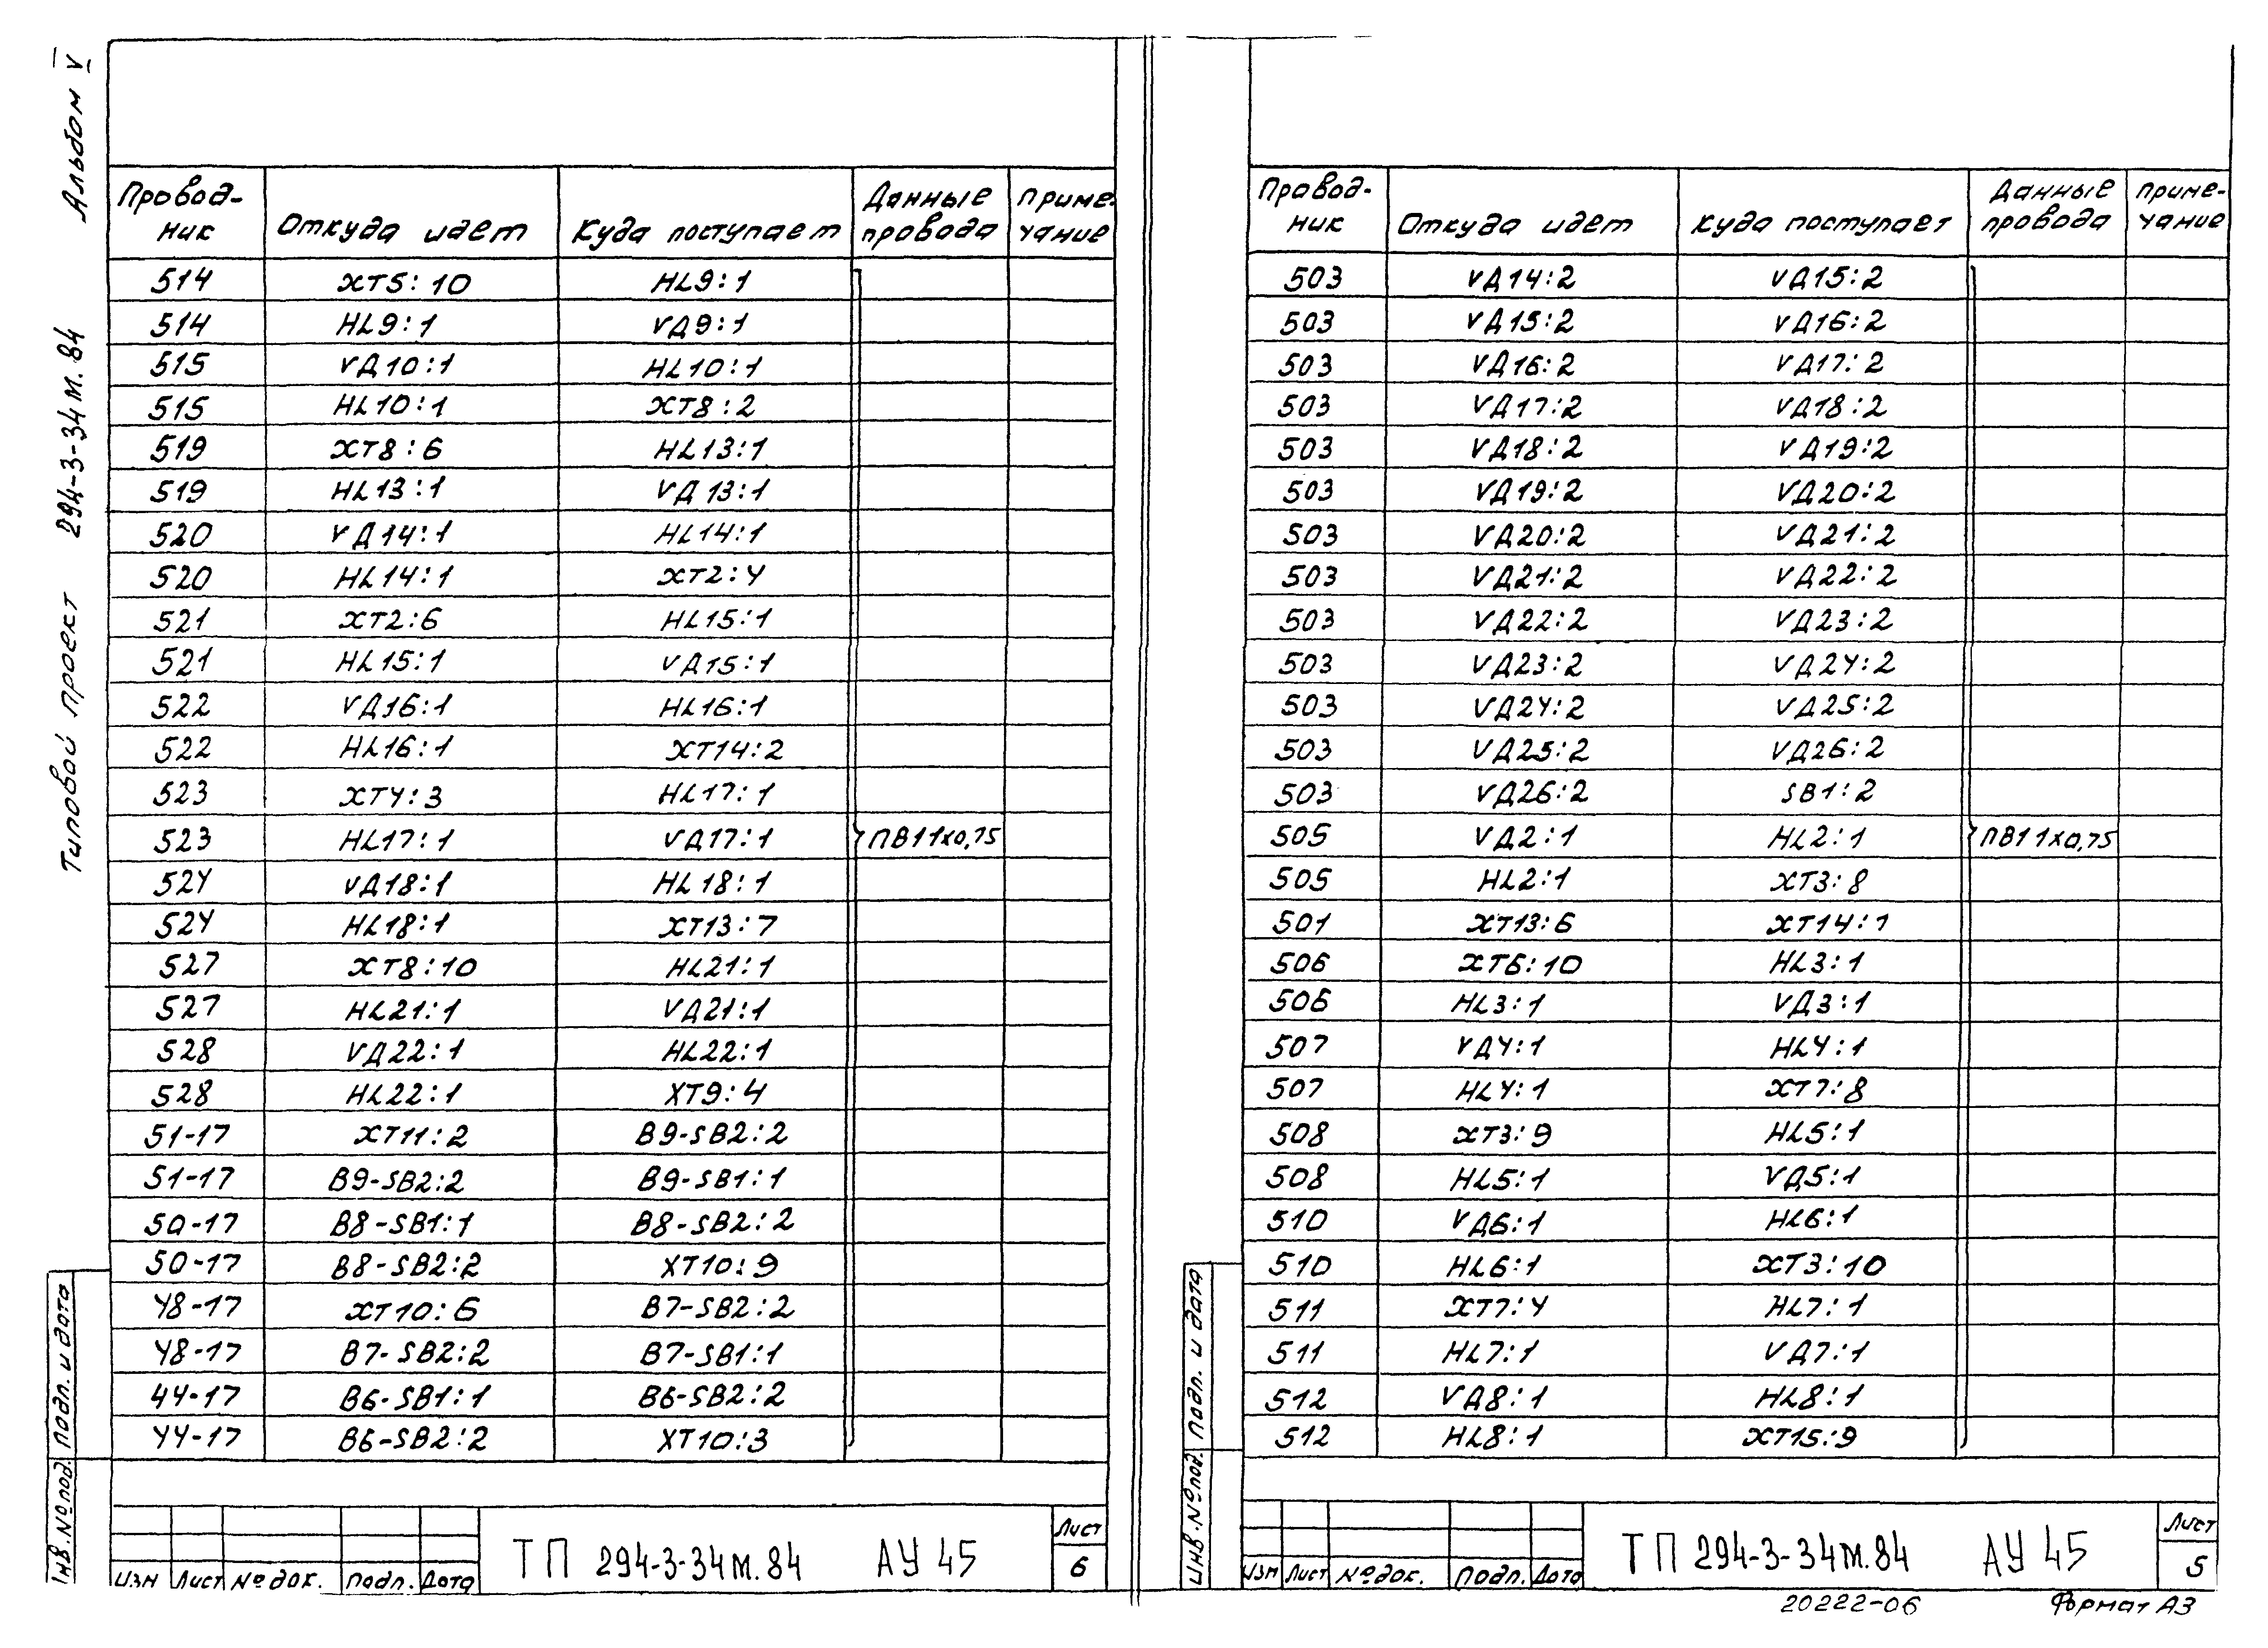 Альбом V
Типовой проект 294-3-34м.84
Провод-ник Откуда идет Куда поступает Данные провода Приме-чание
514 ХТ5:10 HL9:1
514 HL9:1 VД9:1
515 VД10:1 HL10:1
515 HL10:1 ХТ8:2
519 ХТ8:6 HL13:1
519 HL13:1 VД13:1
520 VД14:1 HL14:1
520 HL14:1 ХТ2:4
521 ХТ2:6 HL15:1
521 HL15:1 VД15:1
522 VД16:1 HL16:1
522 HL16:1 ХТ14:2
523 ХТ4:3 HL17:1
523 HL17:1 VД17:1 ПВ1 1х0,75
524 VД18:1 HL18:1
524 HL18:1 ХТ13:7
527 ХТ8:10 HL21:1
527 HL21:1 VД21:1
528 VД22:1 HL22:1
528 HL22:1 ХТ9:4
51-17 ХТ11:2 В9-SB2:2
51-17 В9-SB2:2 В9-SB1:1
50-17 В8-SB1:1 В8-SB2:2
50-17 В8-SB2:2 ХТ10:9
48-17 ХТ10:6 В7-SB2:2
48-17 В7-SB2:2 В7-SB1:1
44-17 В6-SB1:1 В6-SB2:2
44-17 В6-SB2:2 ХТ10:3
Подп. и дата
Инв. № под.
Изм Лист № док. Подп. Дата
ТП 294-3-34м.84 АУ 45
Лист
6
Провод-ник Откуда идет Куда поступает Данные провода Приме-чание
503 VД14:2 VД15:2
503 VД15:2 VД16:2
503 VД16:2 VД17:2
503 VД17:2 VД18:2
503 VД18:2 VД19:2
503 VД19:2 VД20:2
503 VД20:2 VД21:2
503 VД21:2 VД22:2
503 VД22:2 VД23:2
503 VД23:2 VД24:2
503 VД24:2 VД25:2
503 VД25:2 VД26:2
503 VД26:2 SB1:2
505 VД2:1 HL2:1 ПВ1 1х0,75
505 HL2:1 ХТ3:8
501 ХТ13:6 ХТ14:1
506 ХТ6:10 HL3:1
506 HL3:1 VД3:1
507 VД4:1 HL4:1
507 HL4:1 ХТ7:8
508 ХТ3:9 HL5:1
508 HL5:1 VД5:1
510 VД6:1 HL6:1
510 HL6:1 ХТ3:10
511 ХТ7:4 HL7:1
511 HL7:1 VД7:1
512 VД8:1 HL8:1
512 HL8:1 ХТ15:9
Подп. и дата
Инв. № под.
Изм Лист № док. Подп. Дата
ТП 294-3-34м.84 АУ 45
Лист
5
20222-06 Формат А3